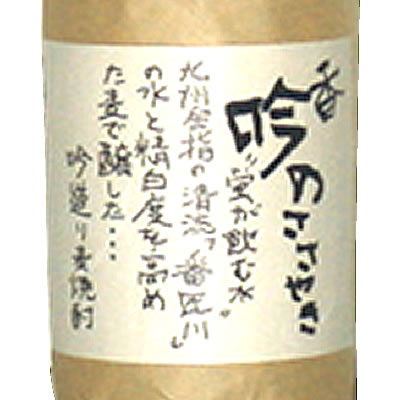 香吟のささやき
"蛍が飲む水"
九州屈指の清流「番匠川」
の水と精白度を高め
た麦で醸した・・・
吟造り麦焼酎